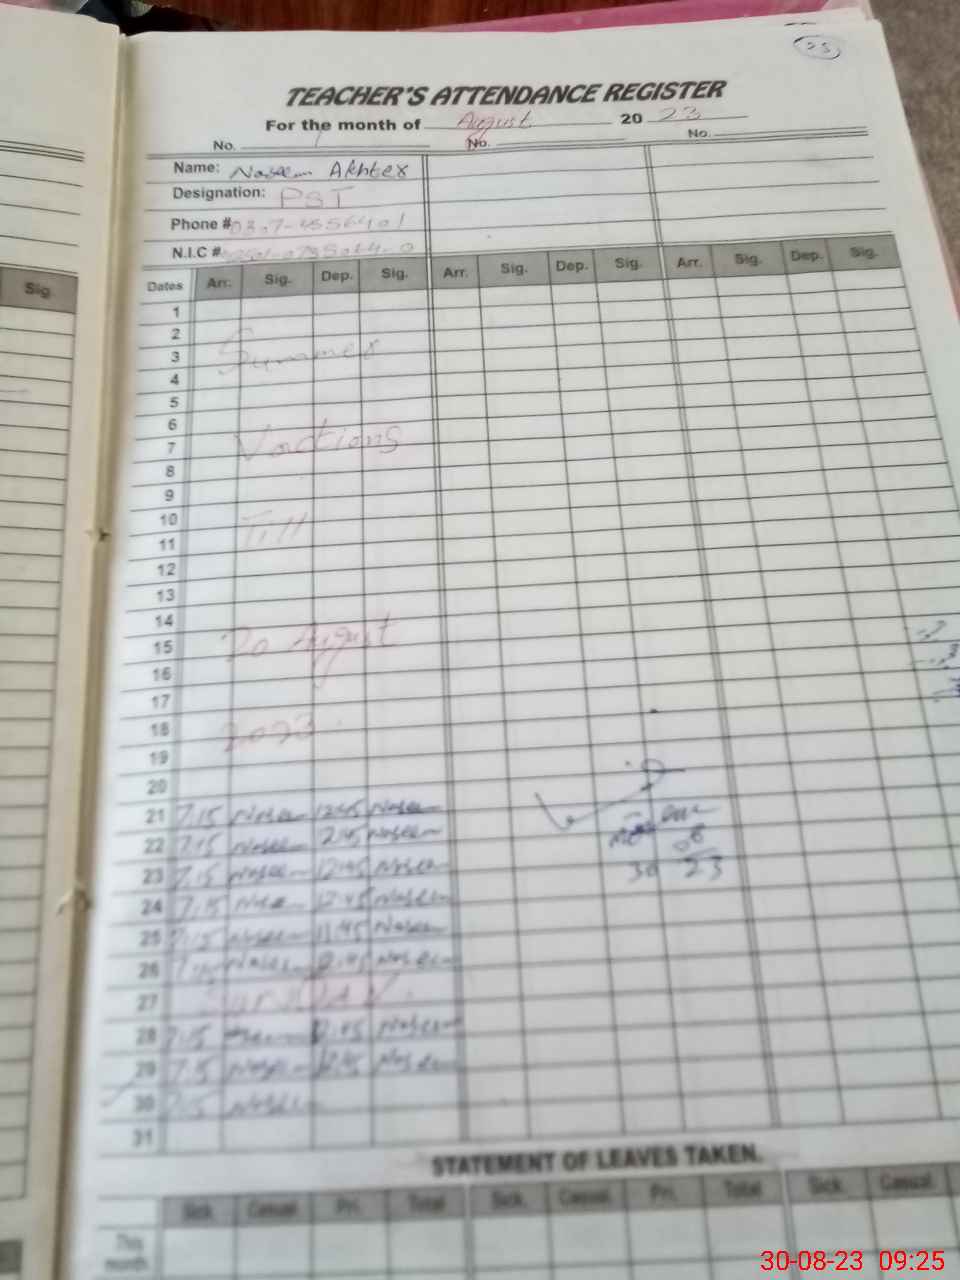 25
TEACHER'S ATTENDANCE REGISTER
For the month of August 2023
No. No. No.
Name: Naseem Akhter
Designation: PST
Phone #
N.I.C #
Sig.
Dates Arr. Sig. Dep. Sig. Arr. Sig. Dep. Sig. Arr. Sig. Dep. Sig.
1
2
3 Summer
4
5
6
7 Vactions
8
9
10 Till
11
12
13
14
15 20 August
16
17
18 2023
19
20
21 7.15 Naseem 12:45 Naseem
22 7.15 Naseem 2:45 Naseem
23 7.15 Naseem 12:45 Naseem
24 7.15 Naseem 12:45 Naseem
25 7.15 Naseem 11:45 Naseem
26 7.15 Naseem 12:45 Naseem
27 SUNDAY.
28 7.15 12:45 Naseem
29 7.15 Naseem 12:45 Naseem
30 7.15 Naseem
31
08
30 23
STATEMENT OF LEAVES TAKEN.
Sick Casual Pri. Total Sick Casual Pri. Total Sick Casual
This
month
30-08-23 09:25